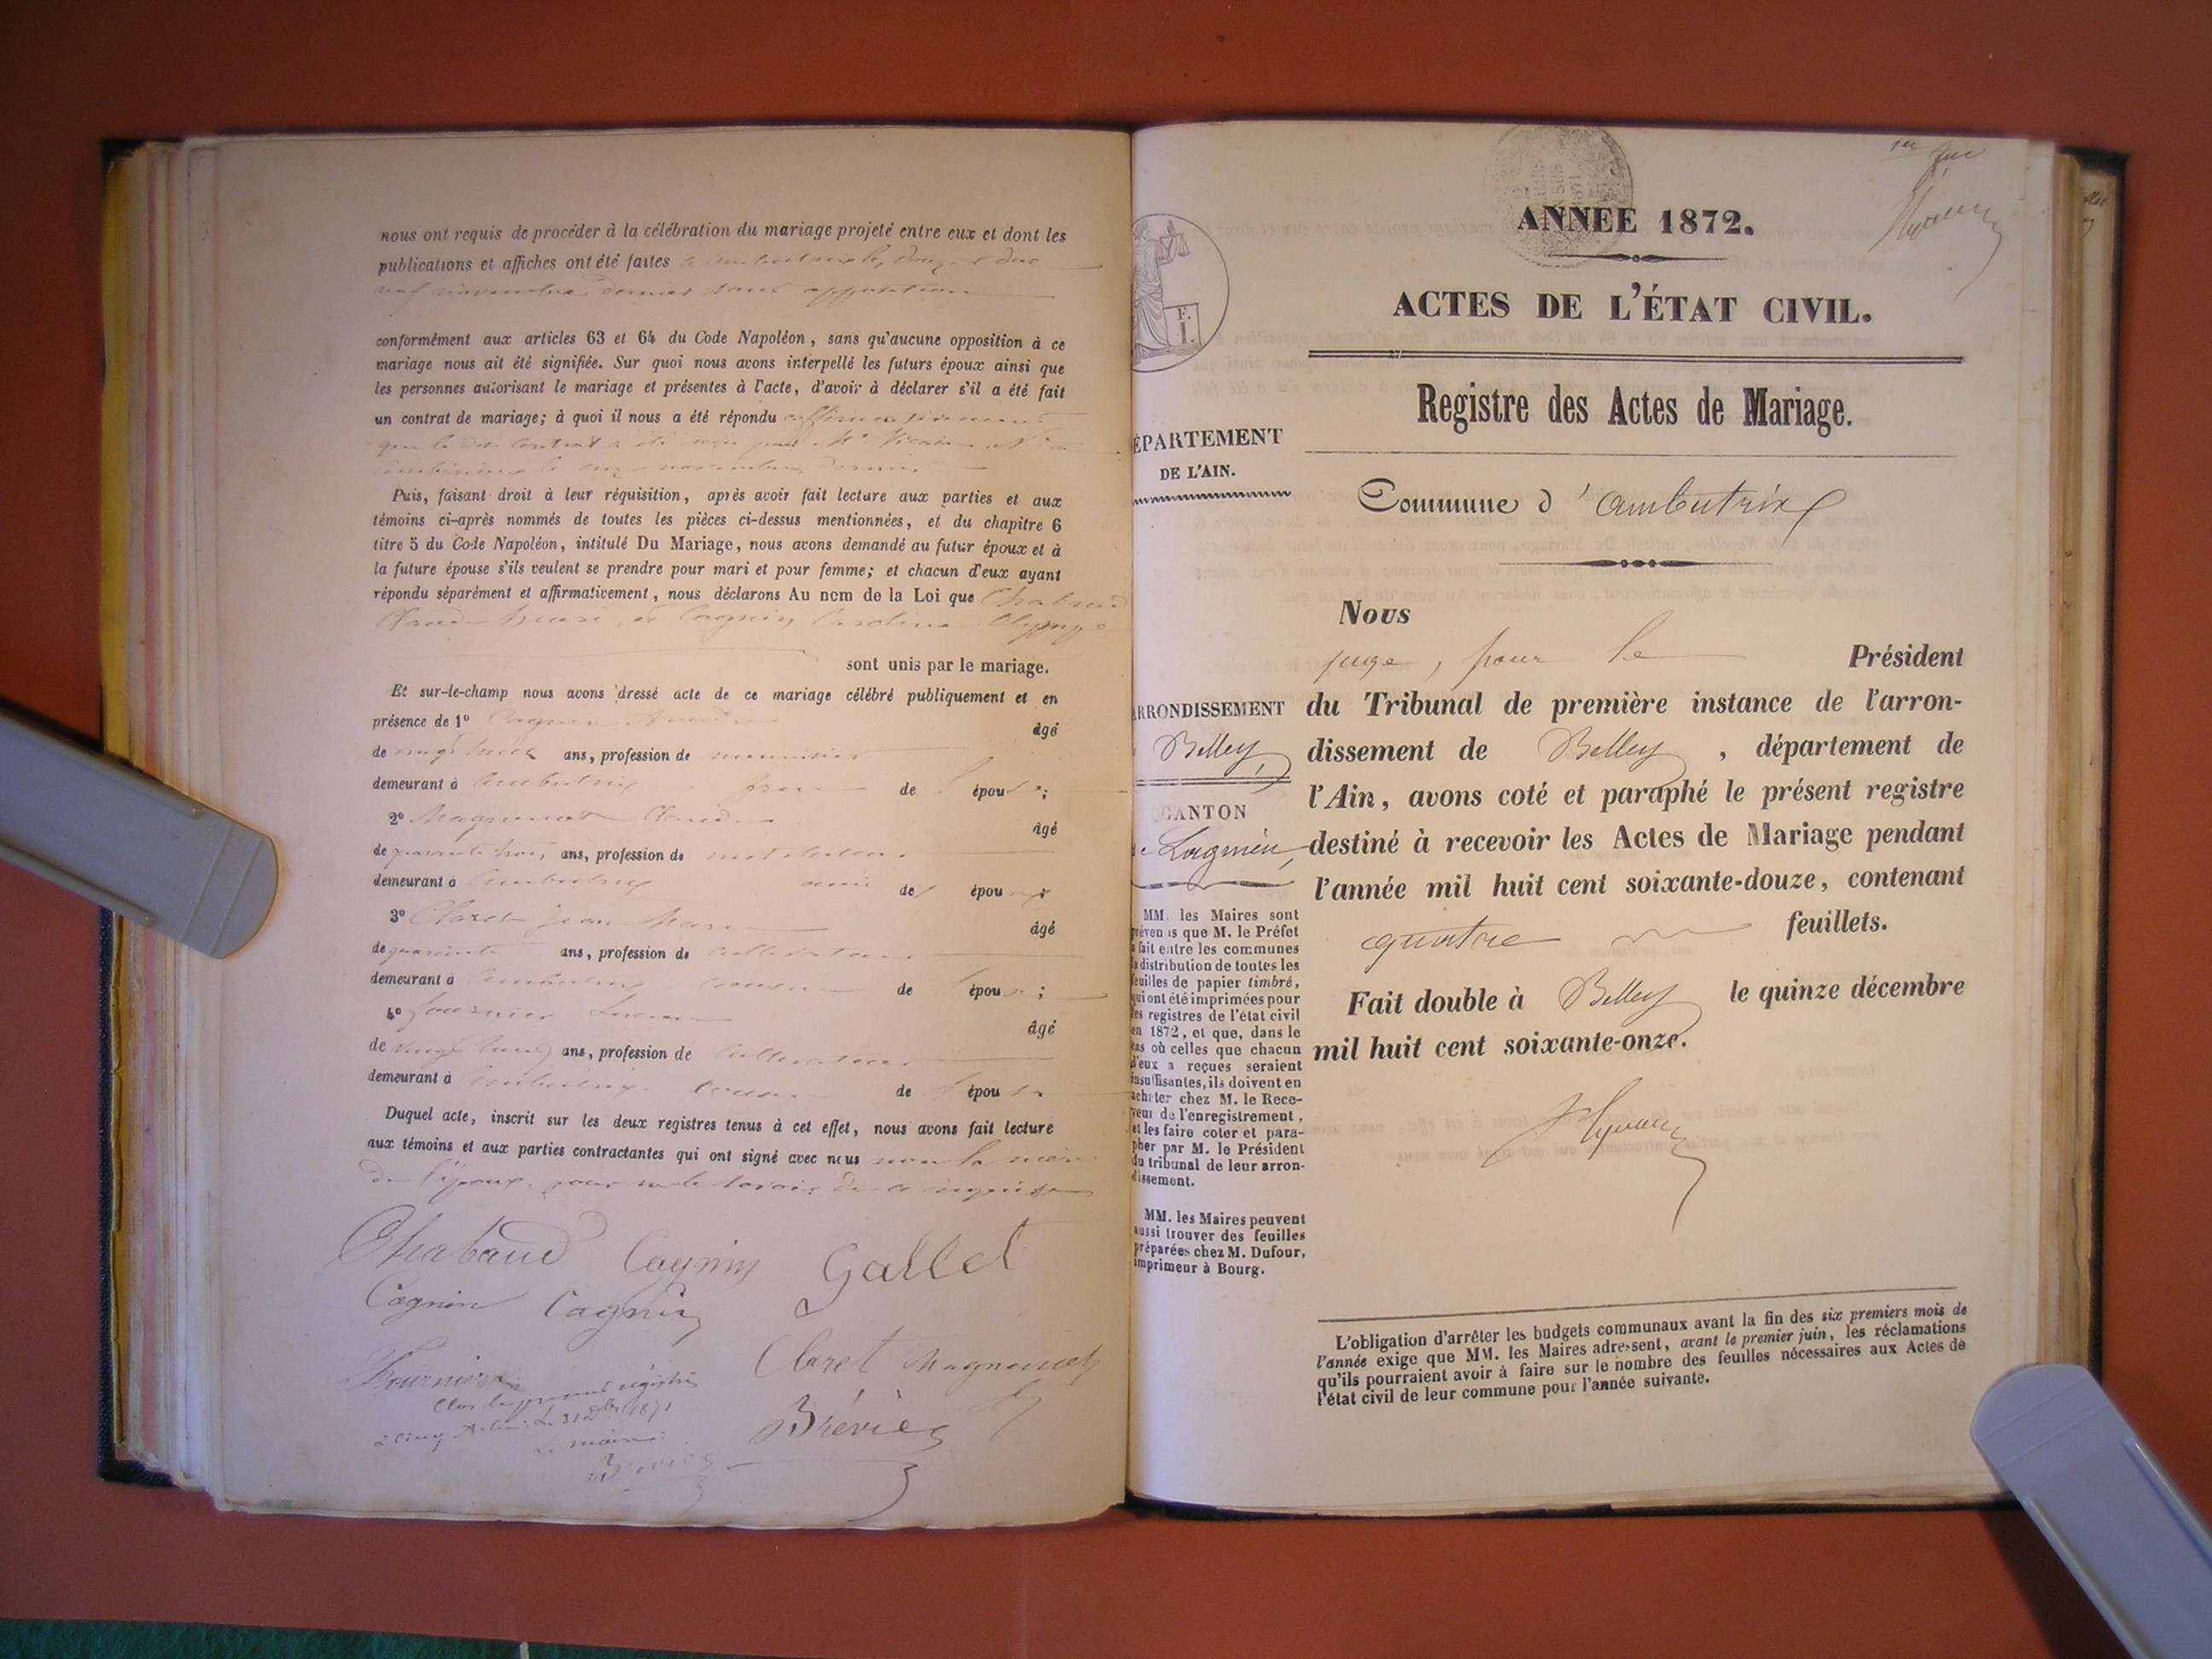 nous ont requis de procéder à la célébration du mariage projeté entre eux et dont les
publications et affiches ont été faites a ambutrix les douze et dix
neuf novembre dernier sans opposition
conformément aux articles 63 et 64 du Code Napoléon, sans qu'aucune opposition à ce
mariage nous ait été signifiée. Sur quoi nous avons interpellé les futurs époux ainsi que
les personnes autorisant le mariage et présentes à l'acte, d'avoir à déclarer s'il a été fait
un contrat de mariage; à quoi il nous a été répondu affirmativement
que le dit contrat a été reçu par Me
le onze novembre dernier
Puis, faisant droit à leur réquisition, après avoir fait lecture aux parties et aux
témoins ci-après nommés de toutes les pièces ci-dessus mentionnées, et du chapitre 6
titre 5 du Code Napoléon, intitulé Du Mariage, nous avons demandé au futur époux et à
la future épouse s'ils veulent se prendre pour mari et pour femme; et chacun d'eux ayant
répondu séparément et affirmativement, nous déclarons Au nom de la Loi que Chabaud
Claude Henri, et Cagnin Caroline Olympe
sont unis par le mariage.
Et sur-le-champ nous avons dressé acte de ce mariage célébré publiquement et en
présence de 1° Cagnin âgé
de ans, profession de menuisier
demeurant à Ambutrix frère de l' épouse;
2° Magnenot Claude âgé
de quarante trois ans, profession de instituteur
demeurant à Ambutrix ami de l' époux
3° Claret Jean Marie âgé
de quarante ans, profession de cultivateur
demeurant à Ambutrix cousin de l' épouse;
4° Fournier âgé
de vingt ans, profession de cultivateur
demeurant à Ambutrix cousin de l' épou
Duquel acte, inscrit sur les deux registres tenus à cet effet, nous avons fait lecture
aux témoins et aux parties contractantes qui ont signé avec nous non la mère
de l'époux, pour ne le savoir, de ce requise
Chabaud Cagnin Gallet
Cagnin Cagnin
Fournier Claret Magnenot
Clos le présent registre
à cinq 31 Dbre 1871
Le maire:
Brévier
Brévier
1er
ANNEE 1872.
ACTES DE L'ÉTAT CIVIL.
Registre des Actes de Mariage.
Commune d'Ambutrix
F.
I.
ÉPARTEMENT
DE L'AIN.
RRONDISSEMENT
Belley,
CANTON
de Lagnieu,
MM. les Maires sont
préven is que M. le Préfet
a fait entre les communes
la distribution de toutes les
feuilles de papier timbré,
qui ont été imprimées pour
les registres de l'état civil
en 1872, et que, dans le
cas où celles que chacun
d'eux a reçues seraient
insuffisantes, ils doivent en
acheter chez M. le Rece-
veur de l'enregistrement,
et les faire coter et para-
pher par M. le Président
du tribunal de leur arron-
dissement.
MM. les Maires peuvent
aussi trouver des feuilles
préparées chez M. Dufour,
imprimeur à Bourg.
Nous
juge, pour le Président
du Tribunal de première instance de l'arron-
dissement de Belley, département de
l'Ain, avons coté et paraphé le présent registre
destiné à recevoir les Actes de Mariage pendant
l'année mil huit cent soixante-douze, contenant
quatre feuillets.
Fait double à Belley le quinze décembre
mil huit cent soixante-onze.
L'obligation d'arrêter les budgets communaux avant la fin des six premiers mois de
l'année exige que MM. les Maires adressent, avant le premier juin, les réclamations
qu'ils pourraient avoir à faire sur le nombre des feuilles nécessaires aux Actes de
l'état civil de leur commune pour l'année suivante.